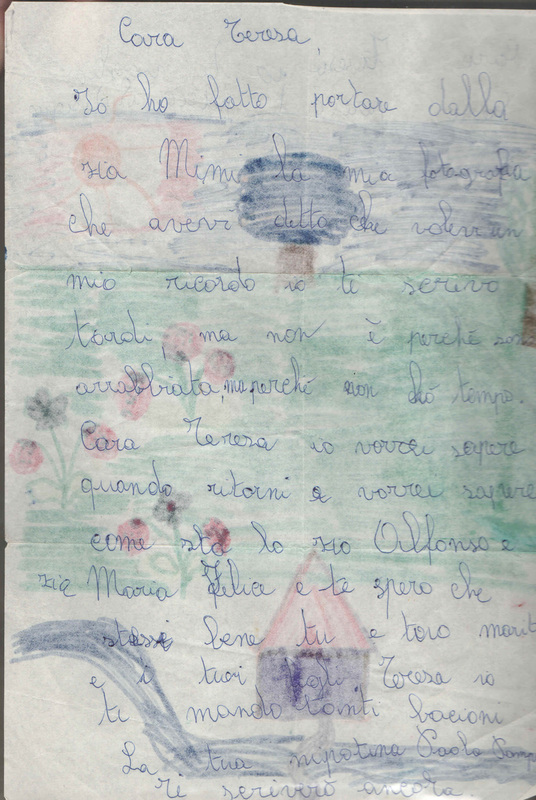 Cara Teresa,
Io ho fatto portare dalla
zia Mimi la mia fotografia
che avevi detto che volevi un
mio ricordo io ti scrivo
tardi, ma non è perché son
arrabbiata, ma perché non hó tempo.
Cara Teresa io vorrei sapere
quando ritorni e vorrei sapere
come sta lo zio Alfonso e
zia Maria Felice e te spero che
stassi bene tu e tuo marit
e i tuoi figli Teresa io
ti mando tanti bacioni
La tua nipotina Paola
Ti scriverò ancora.